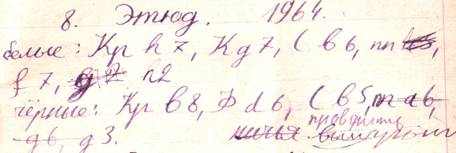 8. Этюд. 1964.
белые: Кр h7, Кд7, С b6, пп h5,
f7, g2 h2
чёрные: Кр b8, Ф d6, С b5, п a6,
g6, g3. ничья выигрыш